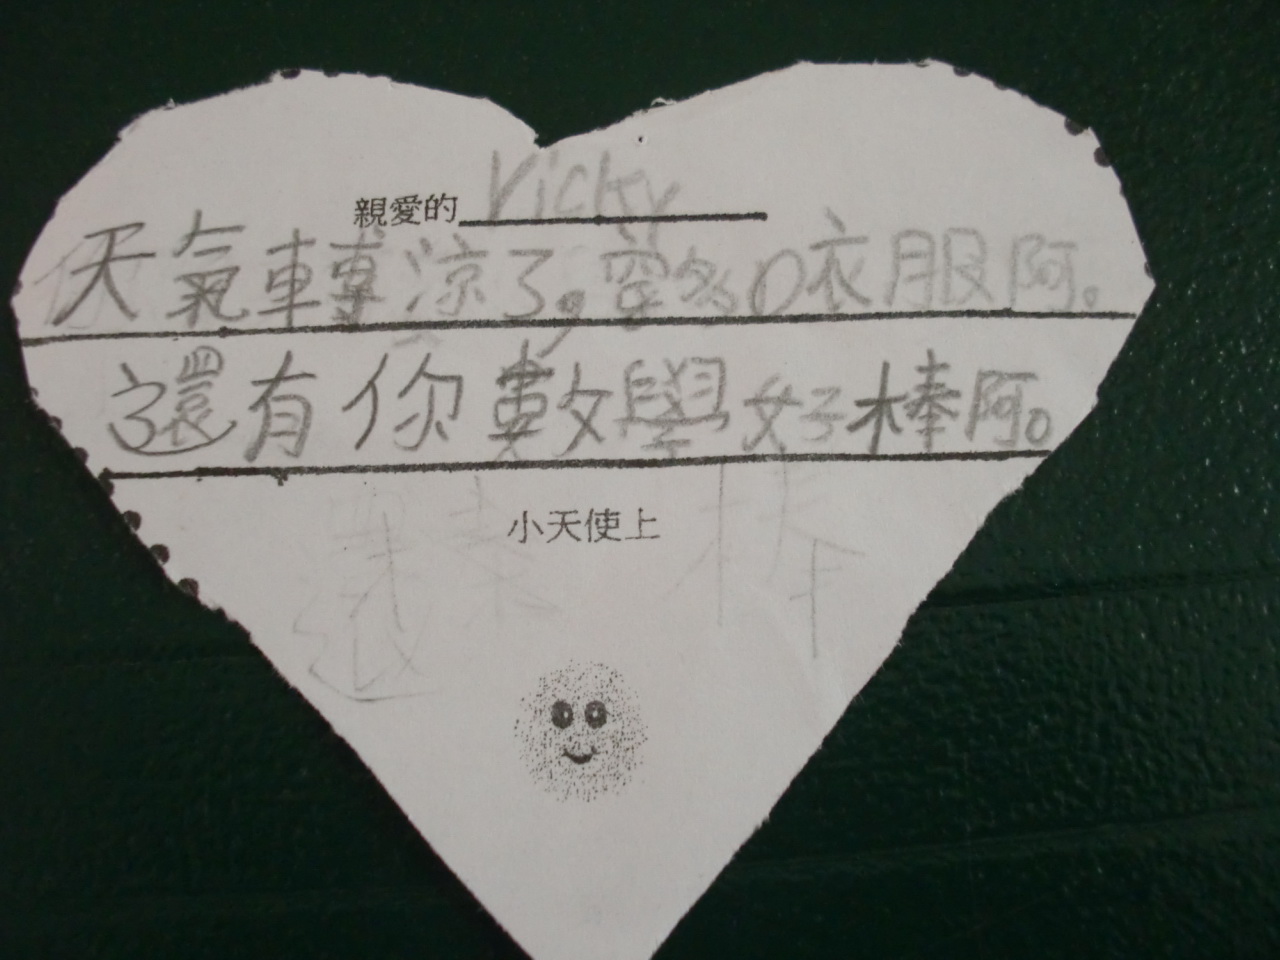 親愛的 Vicky
天氣轉涼了,穿多D衣服阿。
還有你數學好棒阿。
小天使上